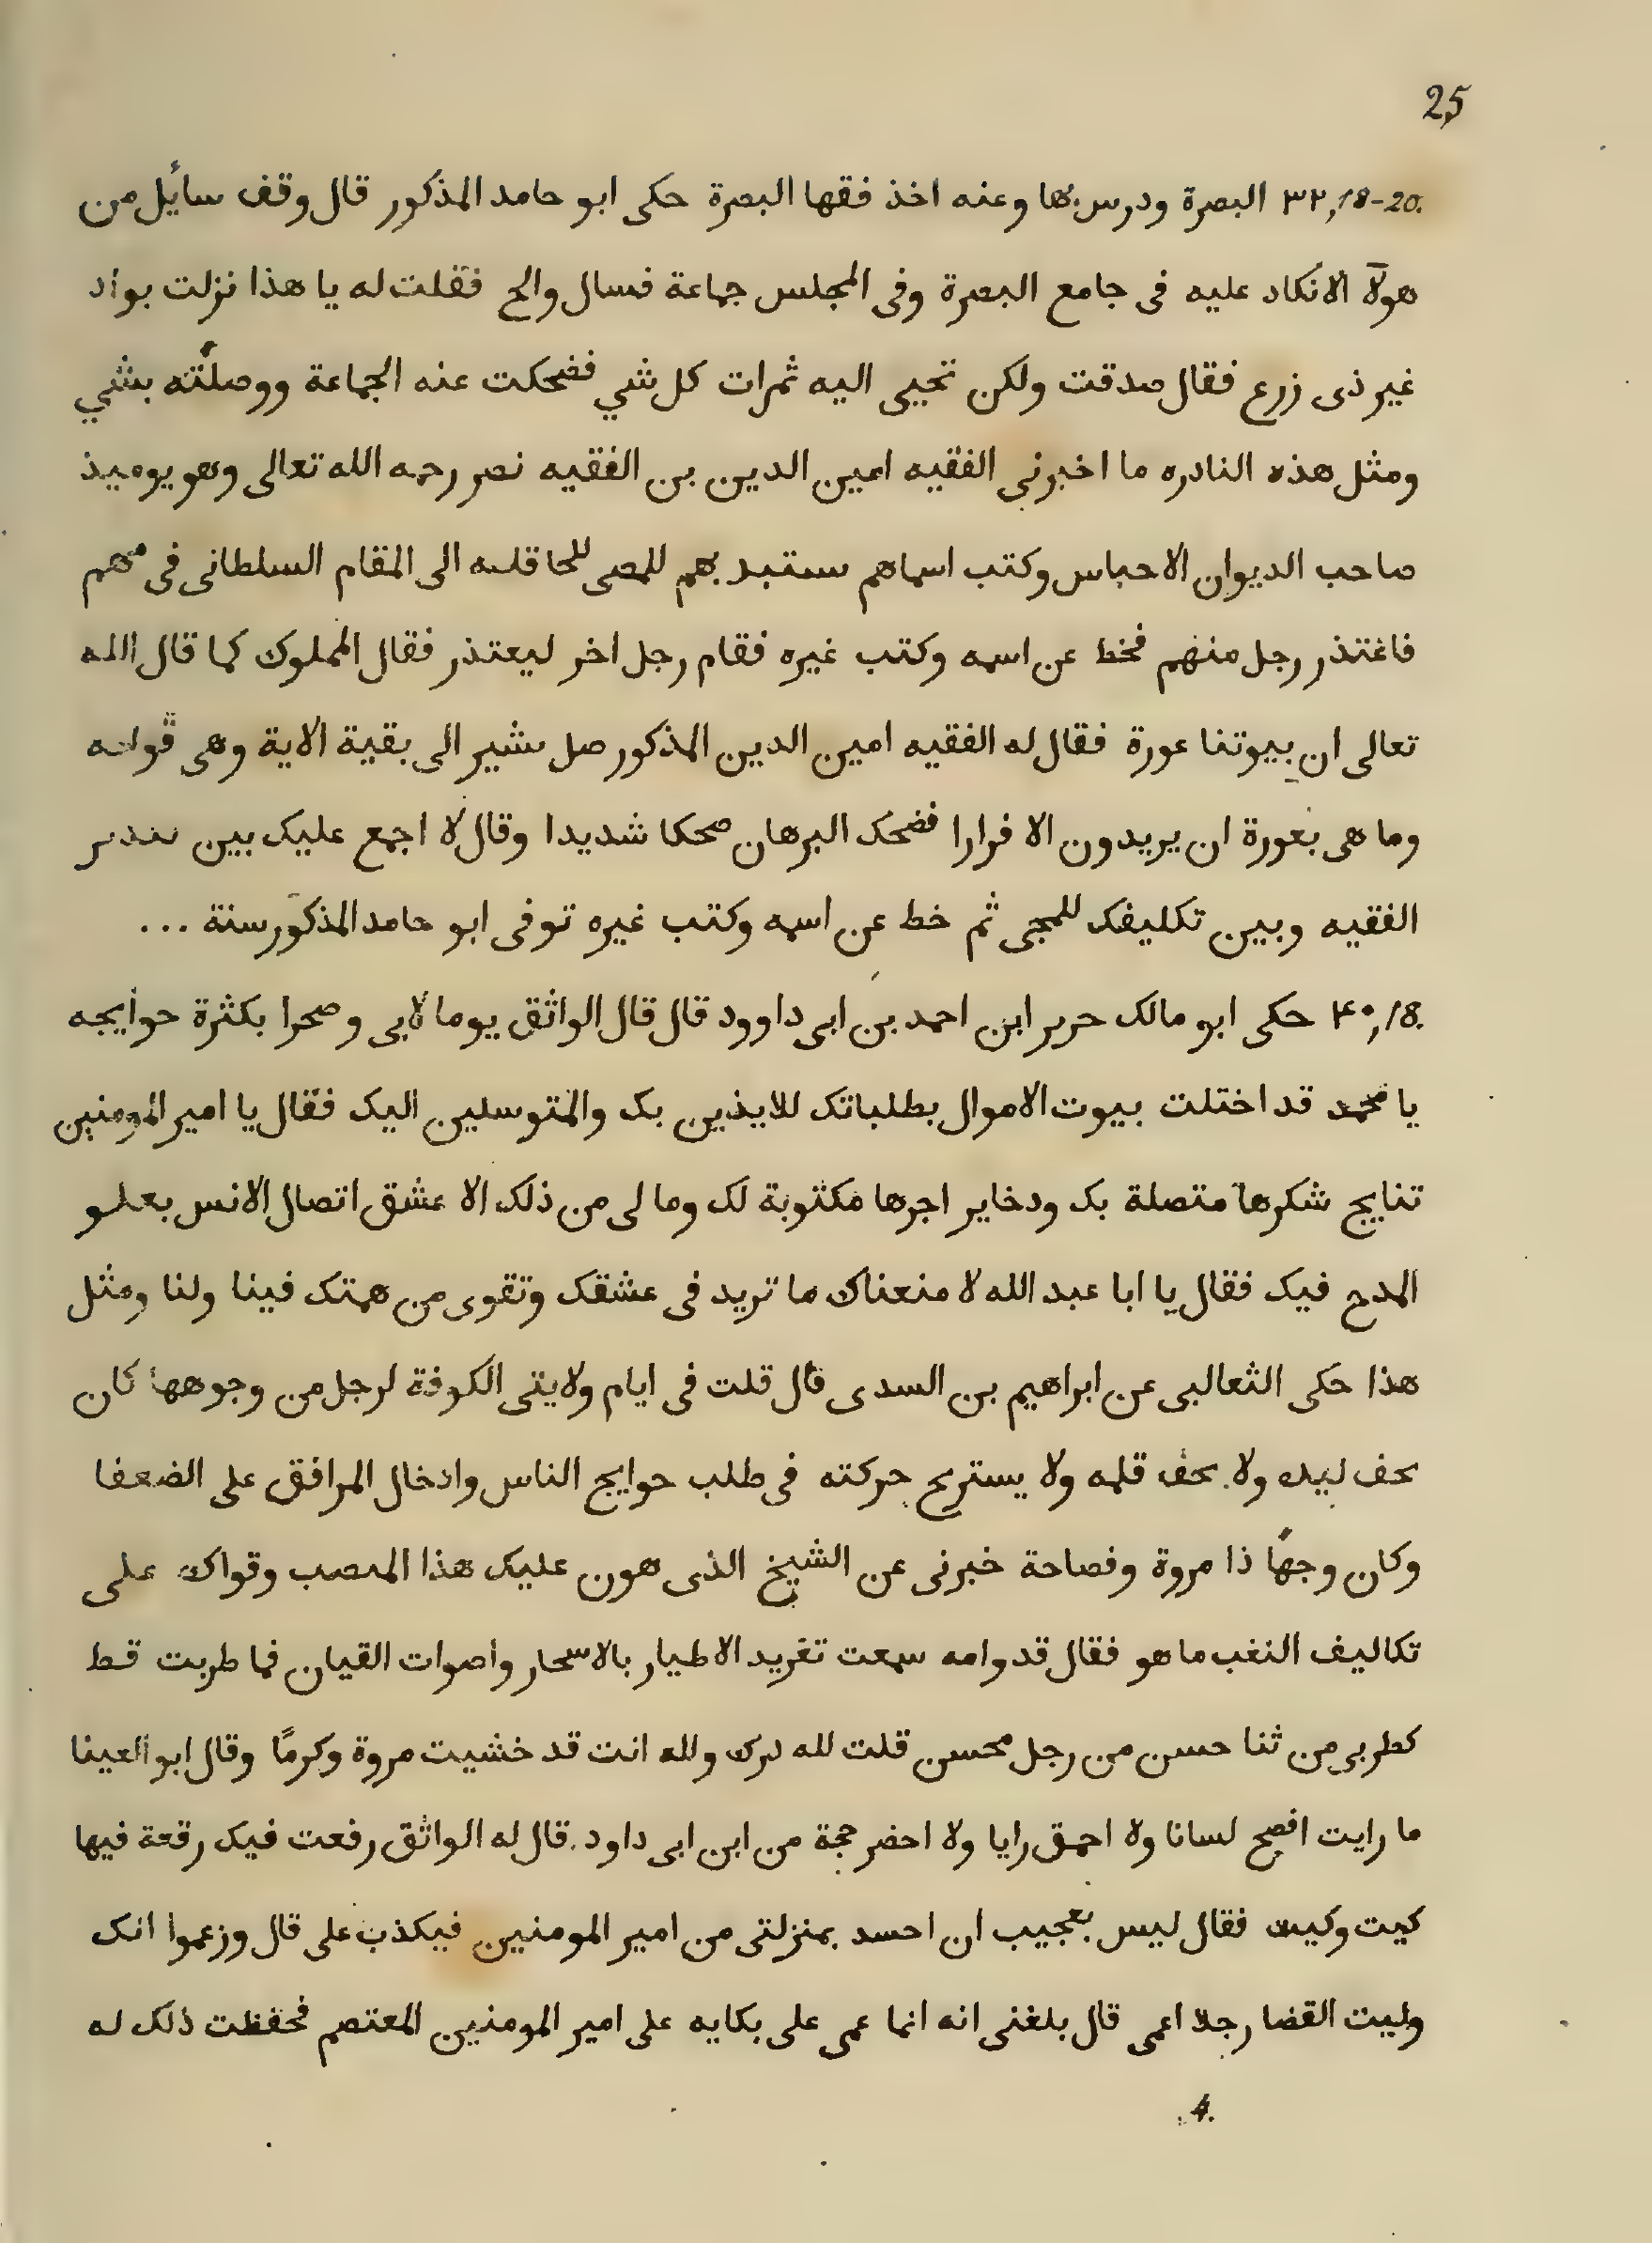 25
٣٢,18-20. البصرة ودرس بها وعنه اخذ فقها البصرة حكى ابو حامد المذكور قال وقف سايل من
هولآ الانكاد عليه فى جامع البصرة وفى المجلس جماعة فسال والح فقلت له يا هذا نزلت بواد
غير ذى زرع فقال صدقت ولكن تحيى اليه ثمرات كل شي فضحكت عنه الجماعة ووصلته بشي
ومثل هذه النادره ما اخبرنى الفقيه امين الدين بن الفقيه نصر رحمه الله تعالى وهو يوميذ
صاحب الديوان الاحباس وكتب اسماهم الى المقام السلطانى فى مهم
فاغتذر رجل منهم فخط عن اسمه وكتب غيره فقام رجل اخر ليعتذر فقال المملوك كما قال الله
تعالى ان بيوتنا عورة فقال له الفقيه امين الدين المذكور صل يشير الى بقية الاية وهى قوله
وما هى بعورة ان يريدون الا فرارا فضحك البرهان ضحكا شديدا وقال لا اجمع عليك بين
الفقيه وبين تكليفك للمجى ثم خط عن اسمه وكتب غيره توفى ابو حامد المذكور سنة ...
٤٠,18. حكى ابو مالك حرير ابن احمد بن ابى داوود قال قال الواثق يوما لابى وصحرا بكثرة حوايجه
يا محمد قد اختلت بيوت الاموال بطلباتك للايذين بك والمتوسلين اليك فقال يا امير المومنين
تنايج شكرها متصلة بك ودخاير اجرها مكتوبة لك وما لى من ذلك الا عشق اتصال الانس بعلو
المدح فيك فقال يا ابا عبد الله لا منعناك ما تريد فى عشقك وتقوى من همتك فينا ولنا ومثل
هذا حكى الثعالبى عن ابراهيم بن السدى قال قلت فى ايام ولايتى الكوفة لرجل من وجوهها كان
لا يحف لبده ولا يحف قلمه ولا يستريح حركته فى طلب حوايج الناس وادخال المرافق على الضعفا
وكان وجهًا ذا مروة وفصاحة خبرنى عن الشيخ الذى هون عليك هذا المنصب وقواك على
تكاليف النغب ما هو فقال قد وامه سمعت تغريد الاطيار بالاسحار واصوات القيان فما طربت قط
كطربى من ثنا حسن من رجل محسن قلت لله درك ولله انت قد خشيت مروة وكرمًا وقال ابو العينا
ما رايت افصح لسانا ولا احمق رايا ولا احضر حجة من ابن ابى داود. قال له الواثق رفعت فيك رقعة فيها
كيت وكيت فقال ليس بعجيب ان احسد بمنزلتى من امير المومنين فيكذب على قال وزعموا انك
وليت القضا رجلا اعمى قال بلغنى انه انما عمى على بكايه على امير المومنين المعتصم فحفظت ذلك له
4.